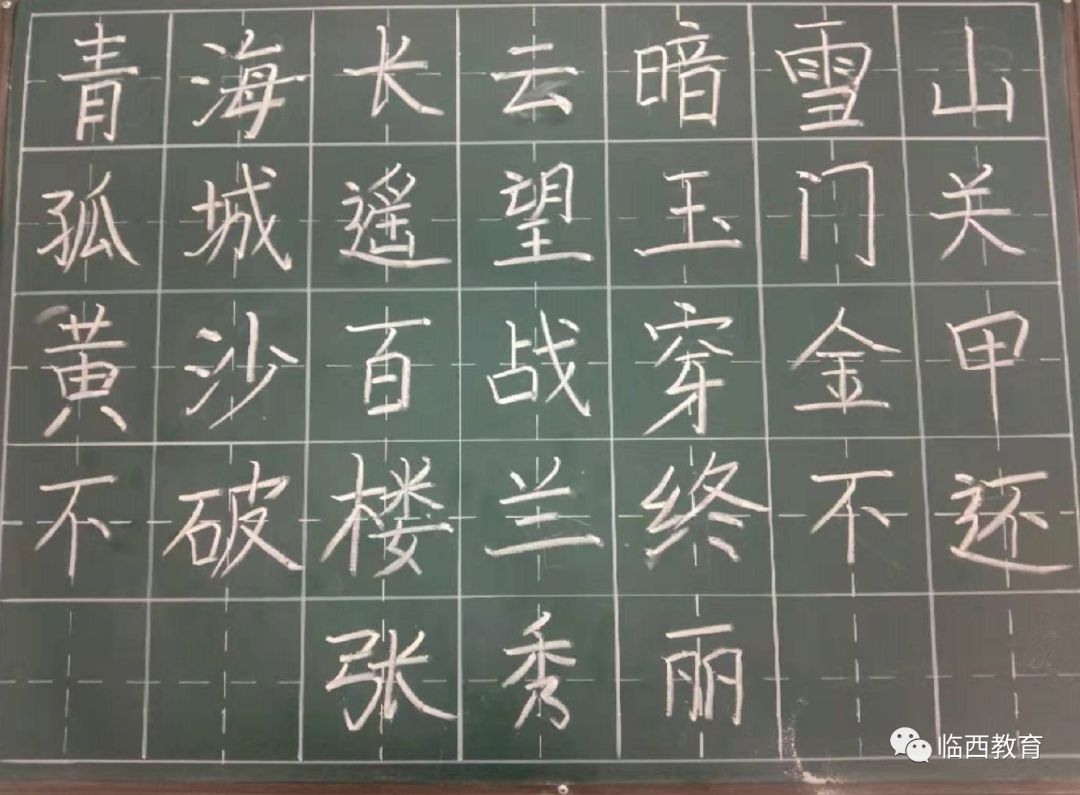 青海长云暗雪山
孤城遥望玉门关
黄沙百战穿金甲
不破楼兰终不还
张秀丽
临西教育